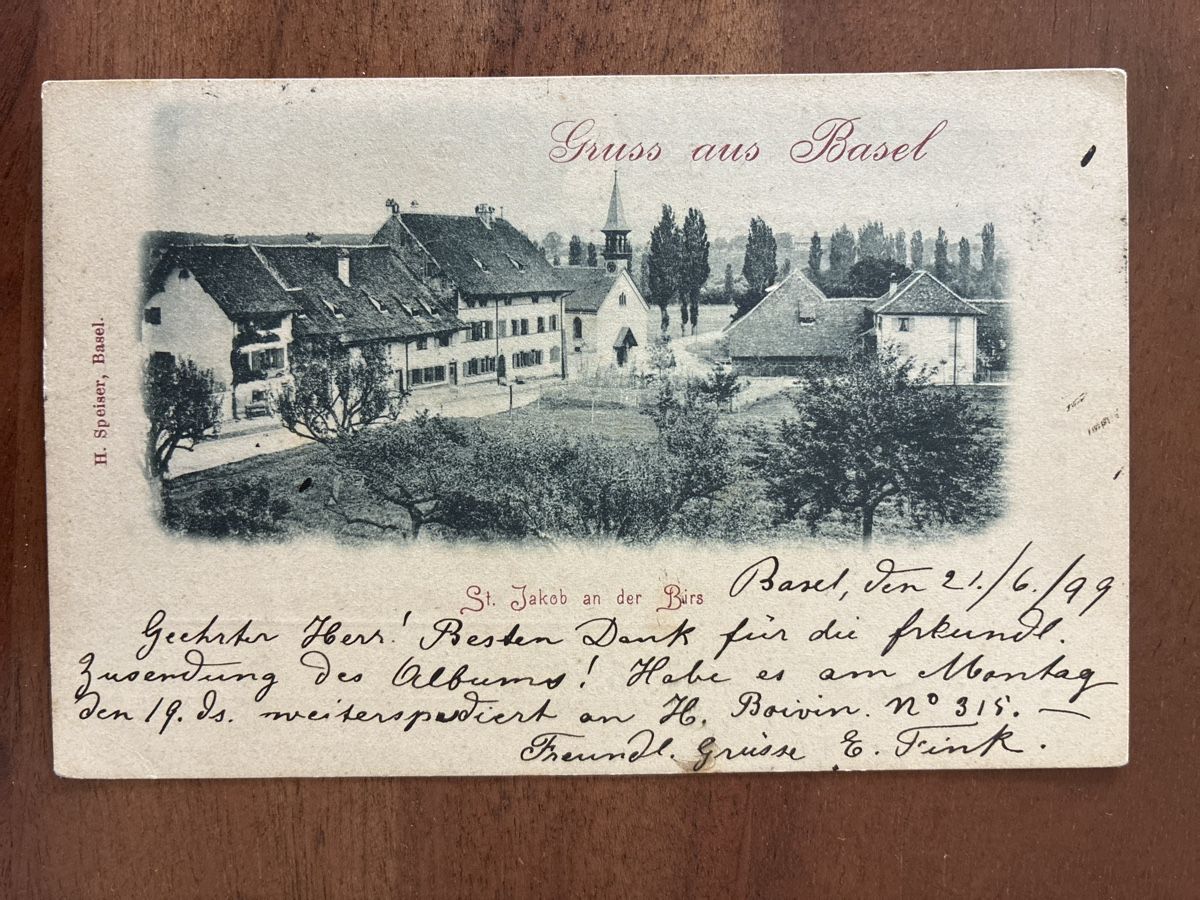 Gruss aus Basel
H. Speiser, Basel.
St. Jakob an der Birs
Basel, den 21./6./99
Geehrter Herr! Besten Dank für die frkundl.
Zusendung des Albums! Habe es am Montag
den 19. ds. weiterspediert an H. Boivin. No 315. —
Freundl. Grüsse E. Fink.